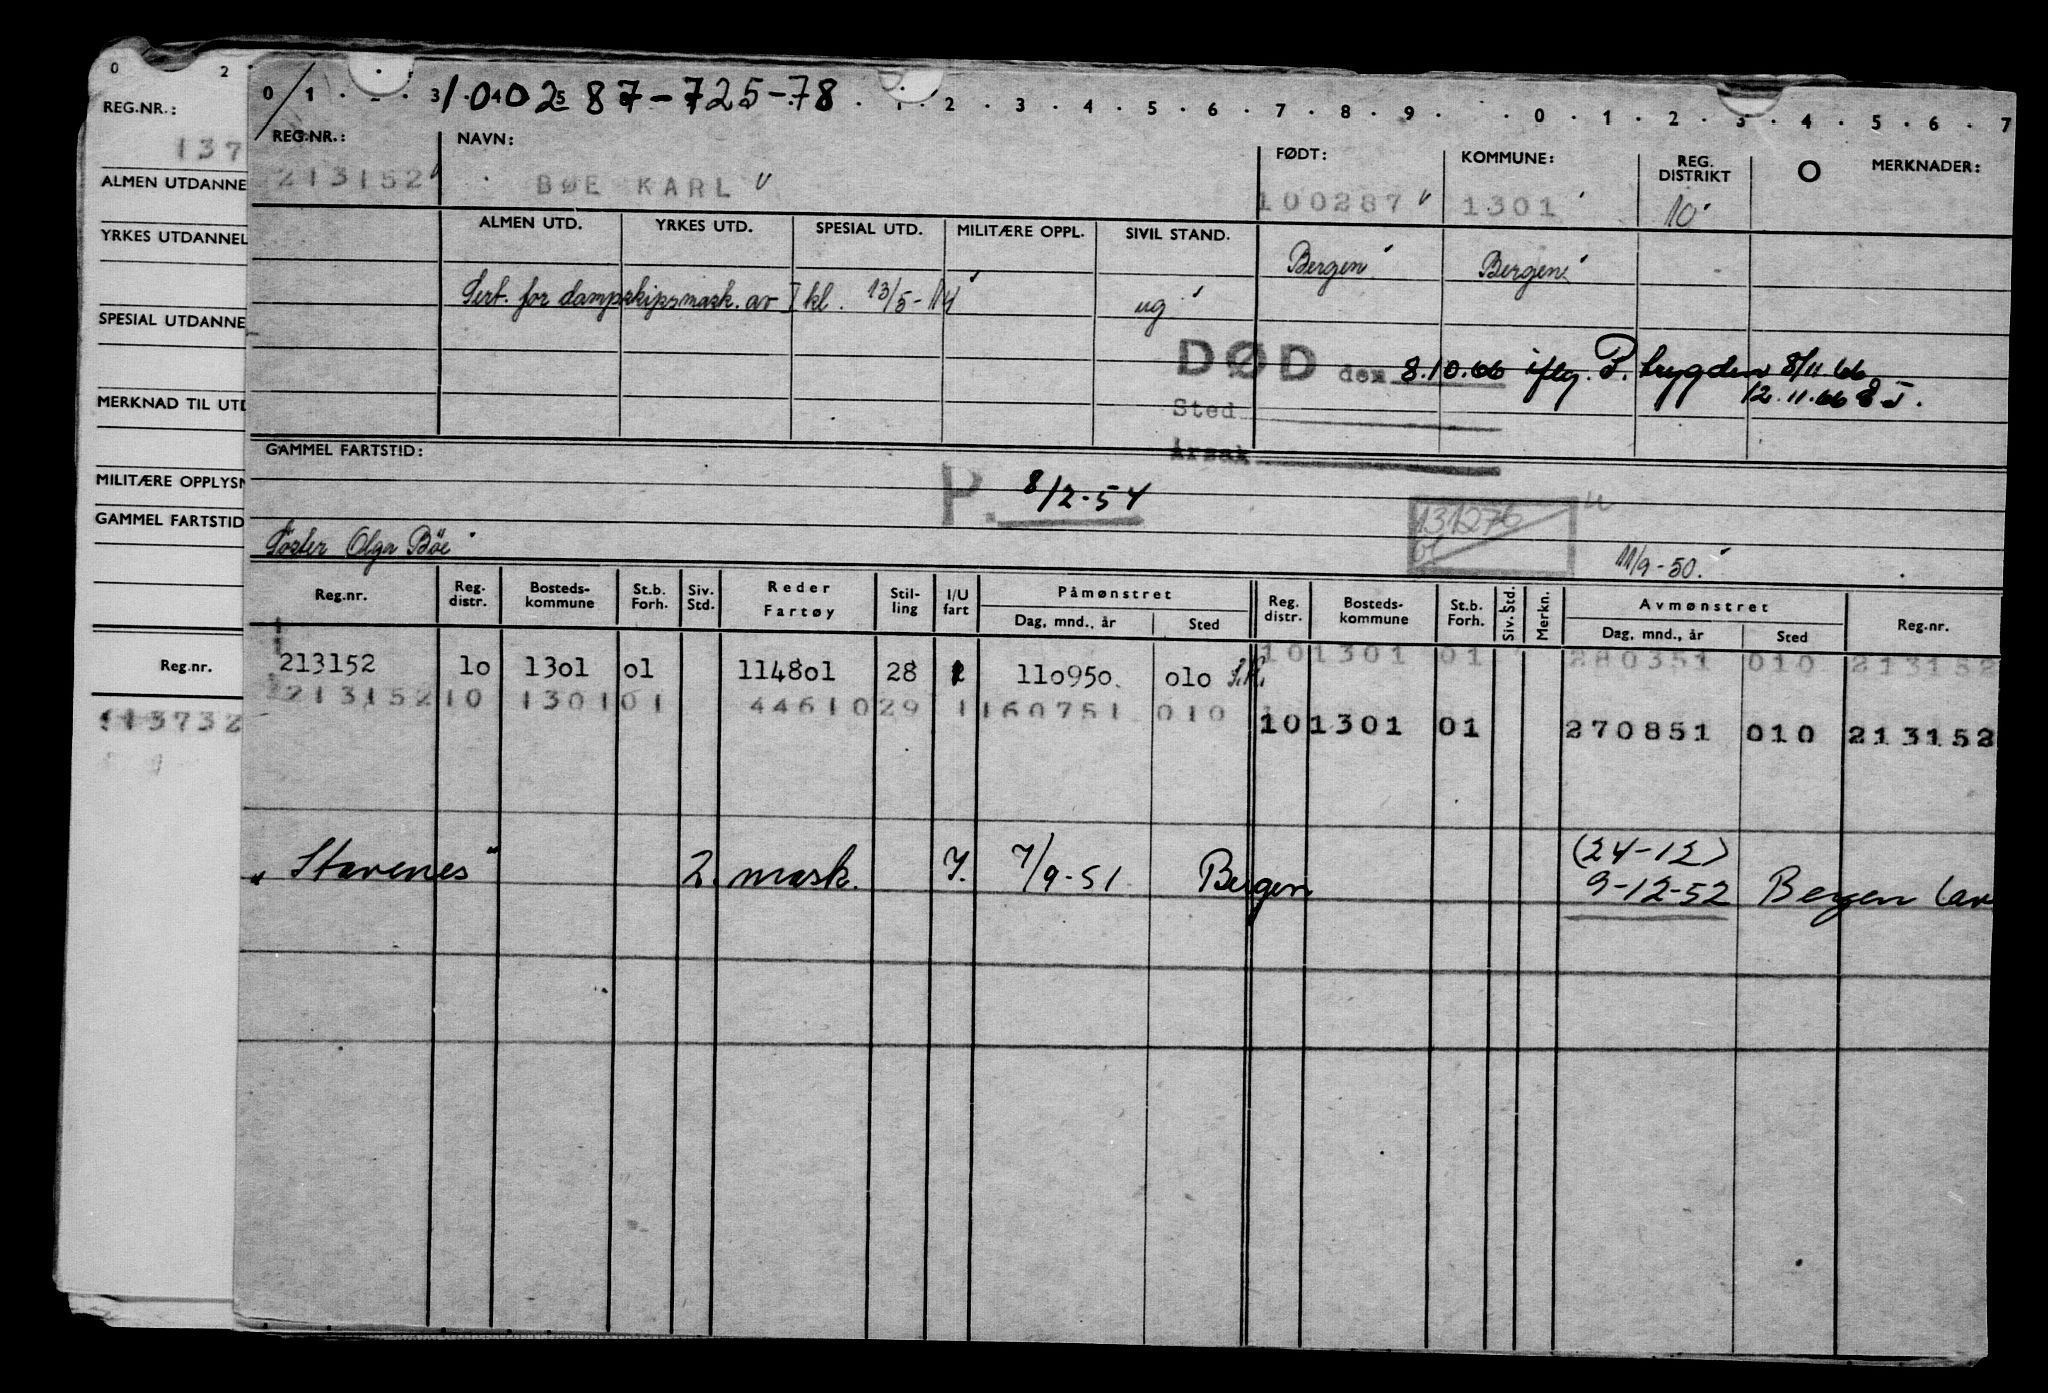 0 2
REG.NR.:
137
ALMEN UTDANNE
YRKES UTDANNEL
SPESIAL UTDANNE
MERKNAD TIL UTD
MILITÆRE OPPLYSN
GAMMEL FARTSTID
Reg.nr.
113732
100287-725-78
0 1 . 2 . 3 . 1 . 2 . 3 . 4 . 5 . 6 . 7 . 8 . 9 . 0 . 1 . 2 . 3 . 4 . 5 . 6 . 7
REG.NR.: NAVN: FØDT: KOMMUNE: REG. DISTRIKT O MERKNADER:
213152 BØE KARL 100287 1301 10
ALMEN UTD. YRKES UTD. SPESIAL UTD. MILITÆRE OPPL. SIVIL STAND.
Bergen Bergen
Sert. for dampskipsmask. av I kl. 13/5-14 ug
DØD den 8.10.66 iflg. P. trygden 8/11.66
12.11.66
Sted
Årsak
GAMMEL FARTSTID:
P. 8/2-54
131276
Søster Olga Bøe
11/9-50.
Reg.nr. Reg. distr. Bosteds- kommune St.b. Forh. Siv. Std. Reder Fartøy Stil- ling I/U fart Påmønstret Dag, mnd., år Sted Reg. distr. Bosteds- kommune St.b. Forh. Siv. Std. Merkn. Avmønstret Dag, mnd., år Sted Reg.nr.
213152 10 1301 01 114801 28 110950 010 10 1301 01 280351 010 213152
213152 10 1301 01 44610 29 1 160751 010 10 1301 01 270851 010 213152
"Stavenes" 2. mask. 7/9-51 Bergen (24-12)
9-12-52 Bergen (av